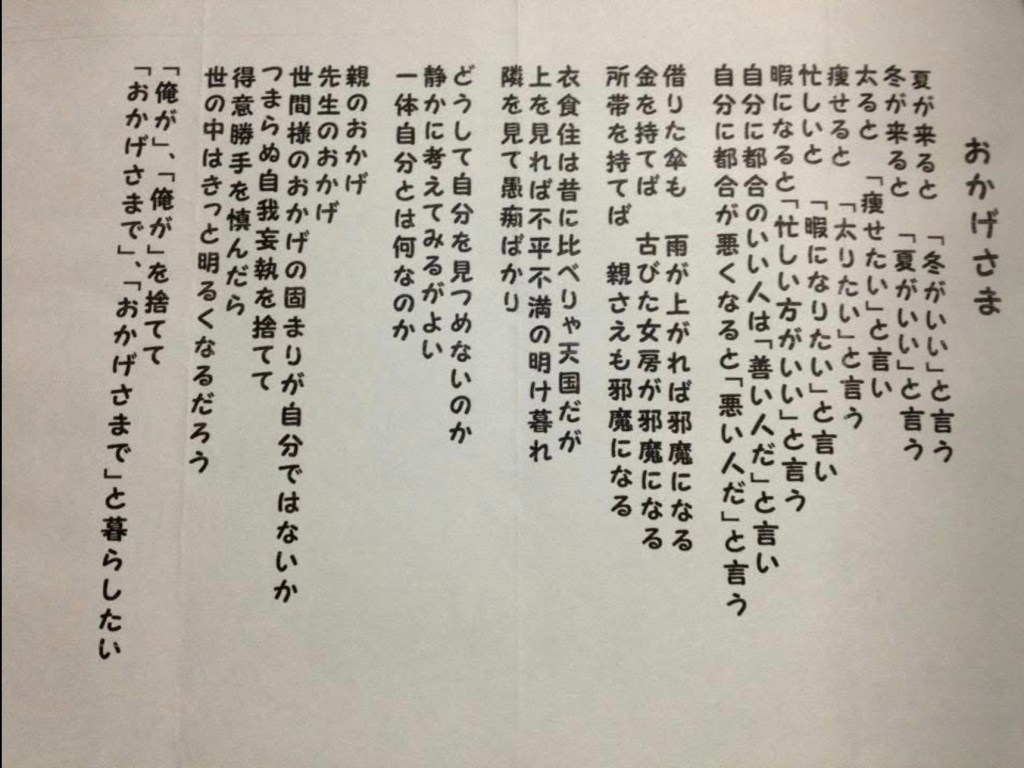 おかげさま
夏が来ると　「冬がいい」と言う
冬が来ると　「夏がいい」と言う
太ると　「痩せたい」と言い
痩せると　「太りたい」と言う
忙しいと　「暇になりたい」と言い
暇になると「忙しい方がいい」と言う
自分に都合のいい人は「善い人だ」と言い
自分に都合が悪くなると「悪い人だ」と言う
借りた傘も　雨が上がれば邪魔になる
金を持てば　古びた女房が邪魔になる
所帯を持てば　親さえも邪魔になる
衣食住は昔に比べりゃ天国だが
上を見れば不平不満の明け暮れ
隣を見て愚痴ばかり
どうして自分を見つめないのか
静かに考えてみるがよい
一体自分とは何なのか
親のおかげ
先生のおかげ
世間様のおかげの固まりが自分ではないか
つまらぬ自我妄執を捨てて
得意勝手を慎んだら
世の中はきっと明るくなるだろう
「俺が」、「俺が」を捨てて
「おかげさまで」、「おかげさまで」と暮らしたい